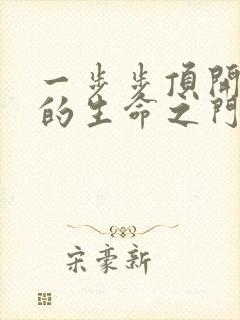 一步步頂開
的生命之門
宋豪新